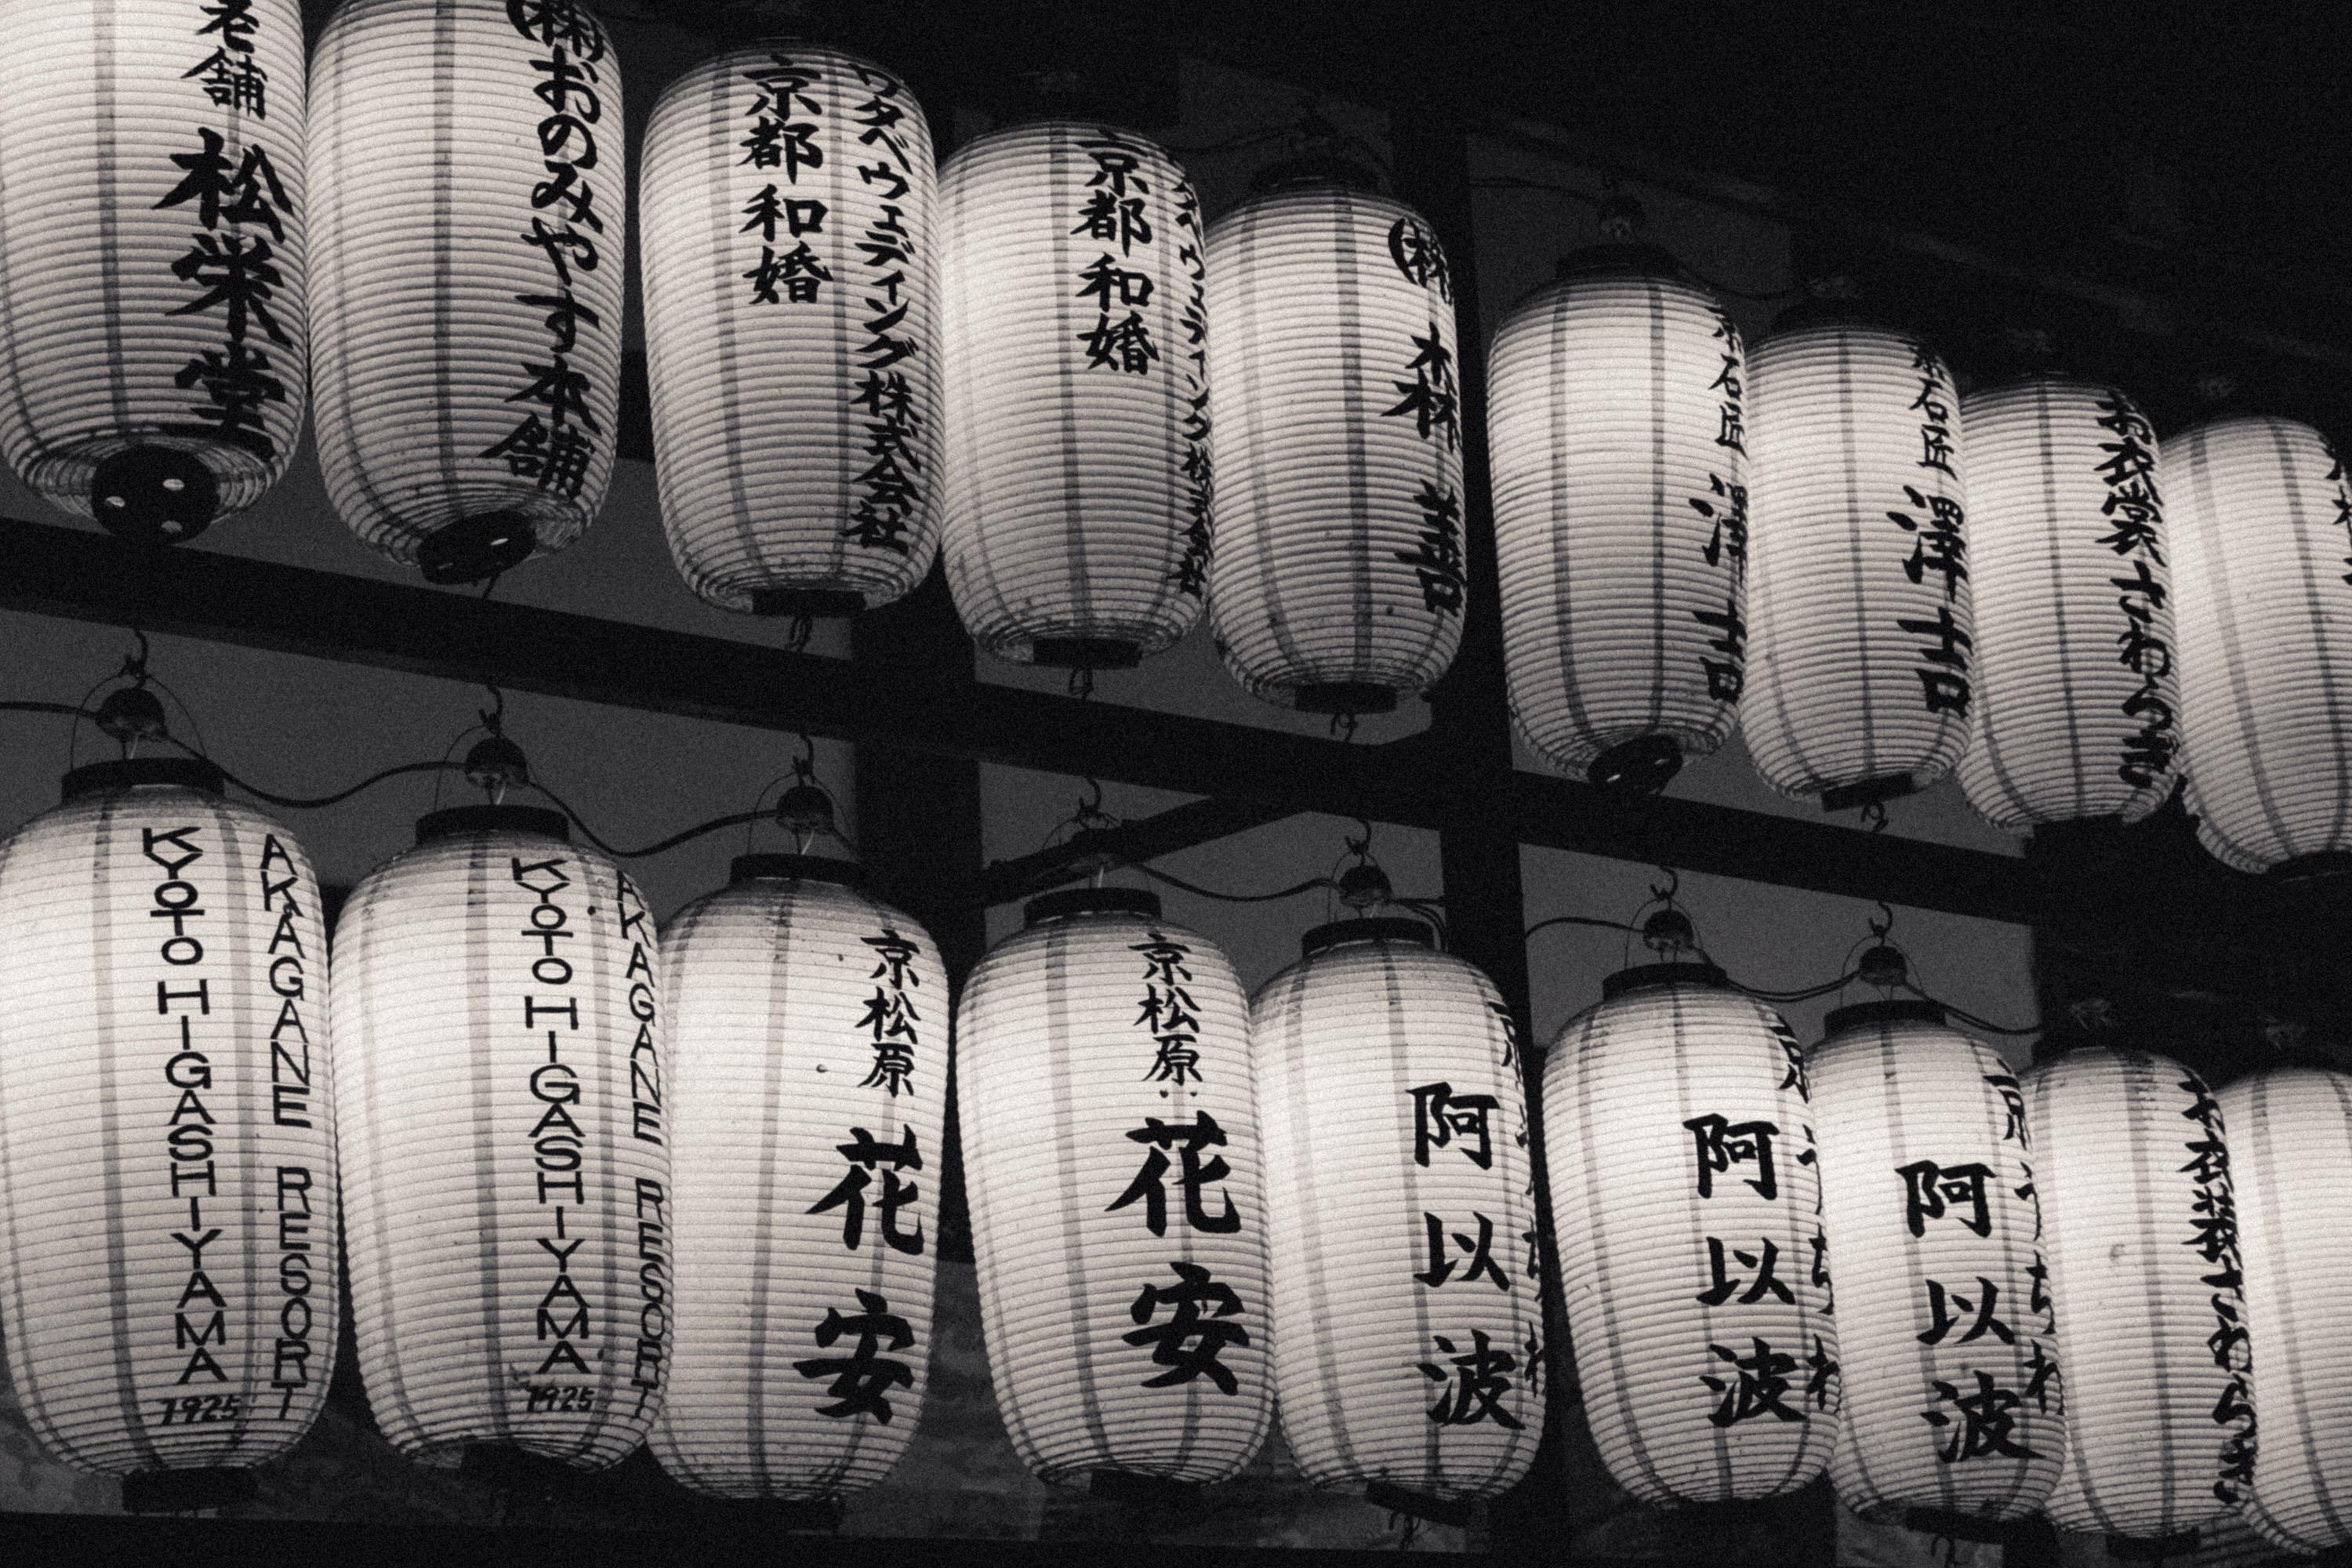 老舗
松栄堂
(株)おのみやす本舗
京都和婚
タベウェディング株式会社
京都和婚
ウェディング株式会社
(株)
石匠
澤吉
石匠
澤吉
お衣裳さわらぎ
KYOTO HIGASHIYAMA
1925
AKAGANE RESORT
KYOTO HIGASHIYAMA
1925
AKAGANE RESORT
京松原
花安
京松原
花安
阿以波
阿以波
京うちわ
阿以波
京うちわ